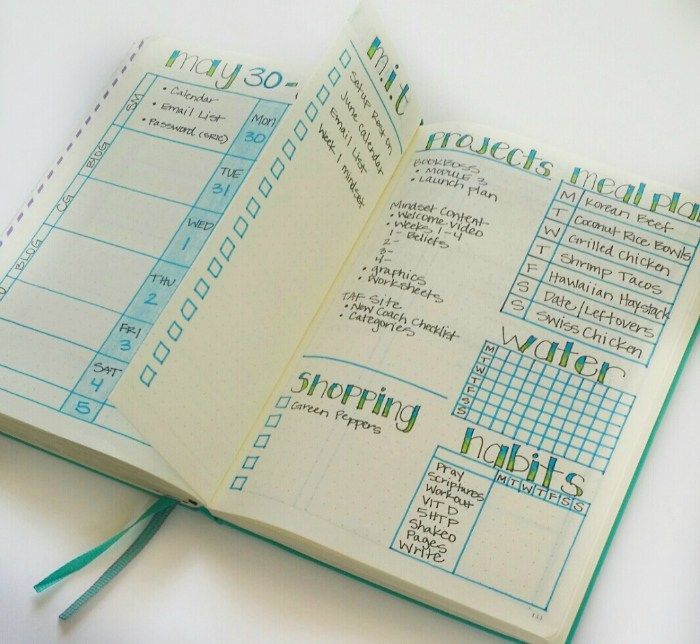 may 30-
SM
BLOG
CG
BLOG
• Calendar
• Email List
• Password (SRIC)
MON
30
TUE
31
WED
1
THU
2
FRI
3
SAT
4
5
m.i.t
June Calendar
Email List
Week 1 mindset
projects
BOOKBOSS
• Module 3
• Launch plan
Mindset Content-
• Welcome video
• Weeks 1-4
1- Beliefs
2-
3-
4-
• graphics
• Worksheets
TAF Site
• New Coach Checklist
• Categories
meal pla
M Korean Beef
T Coconut Rice Bowls
W Grilled Chicken
T Shrimp Tacos
F Hawaiian Haystack
S Date/Leftovers
S Swiss Chicken
water
M
T
W
T
F
S
S
Shopping
Green Peppers
habits
M T W T F S S
Pray
Scriptures
Workout
VIT D
5HTP
Shakeo
Pages
Write